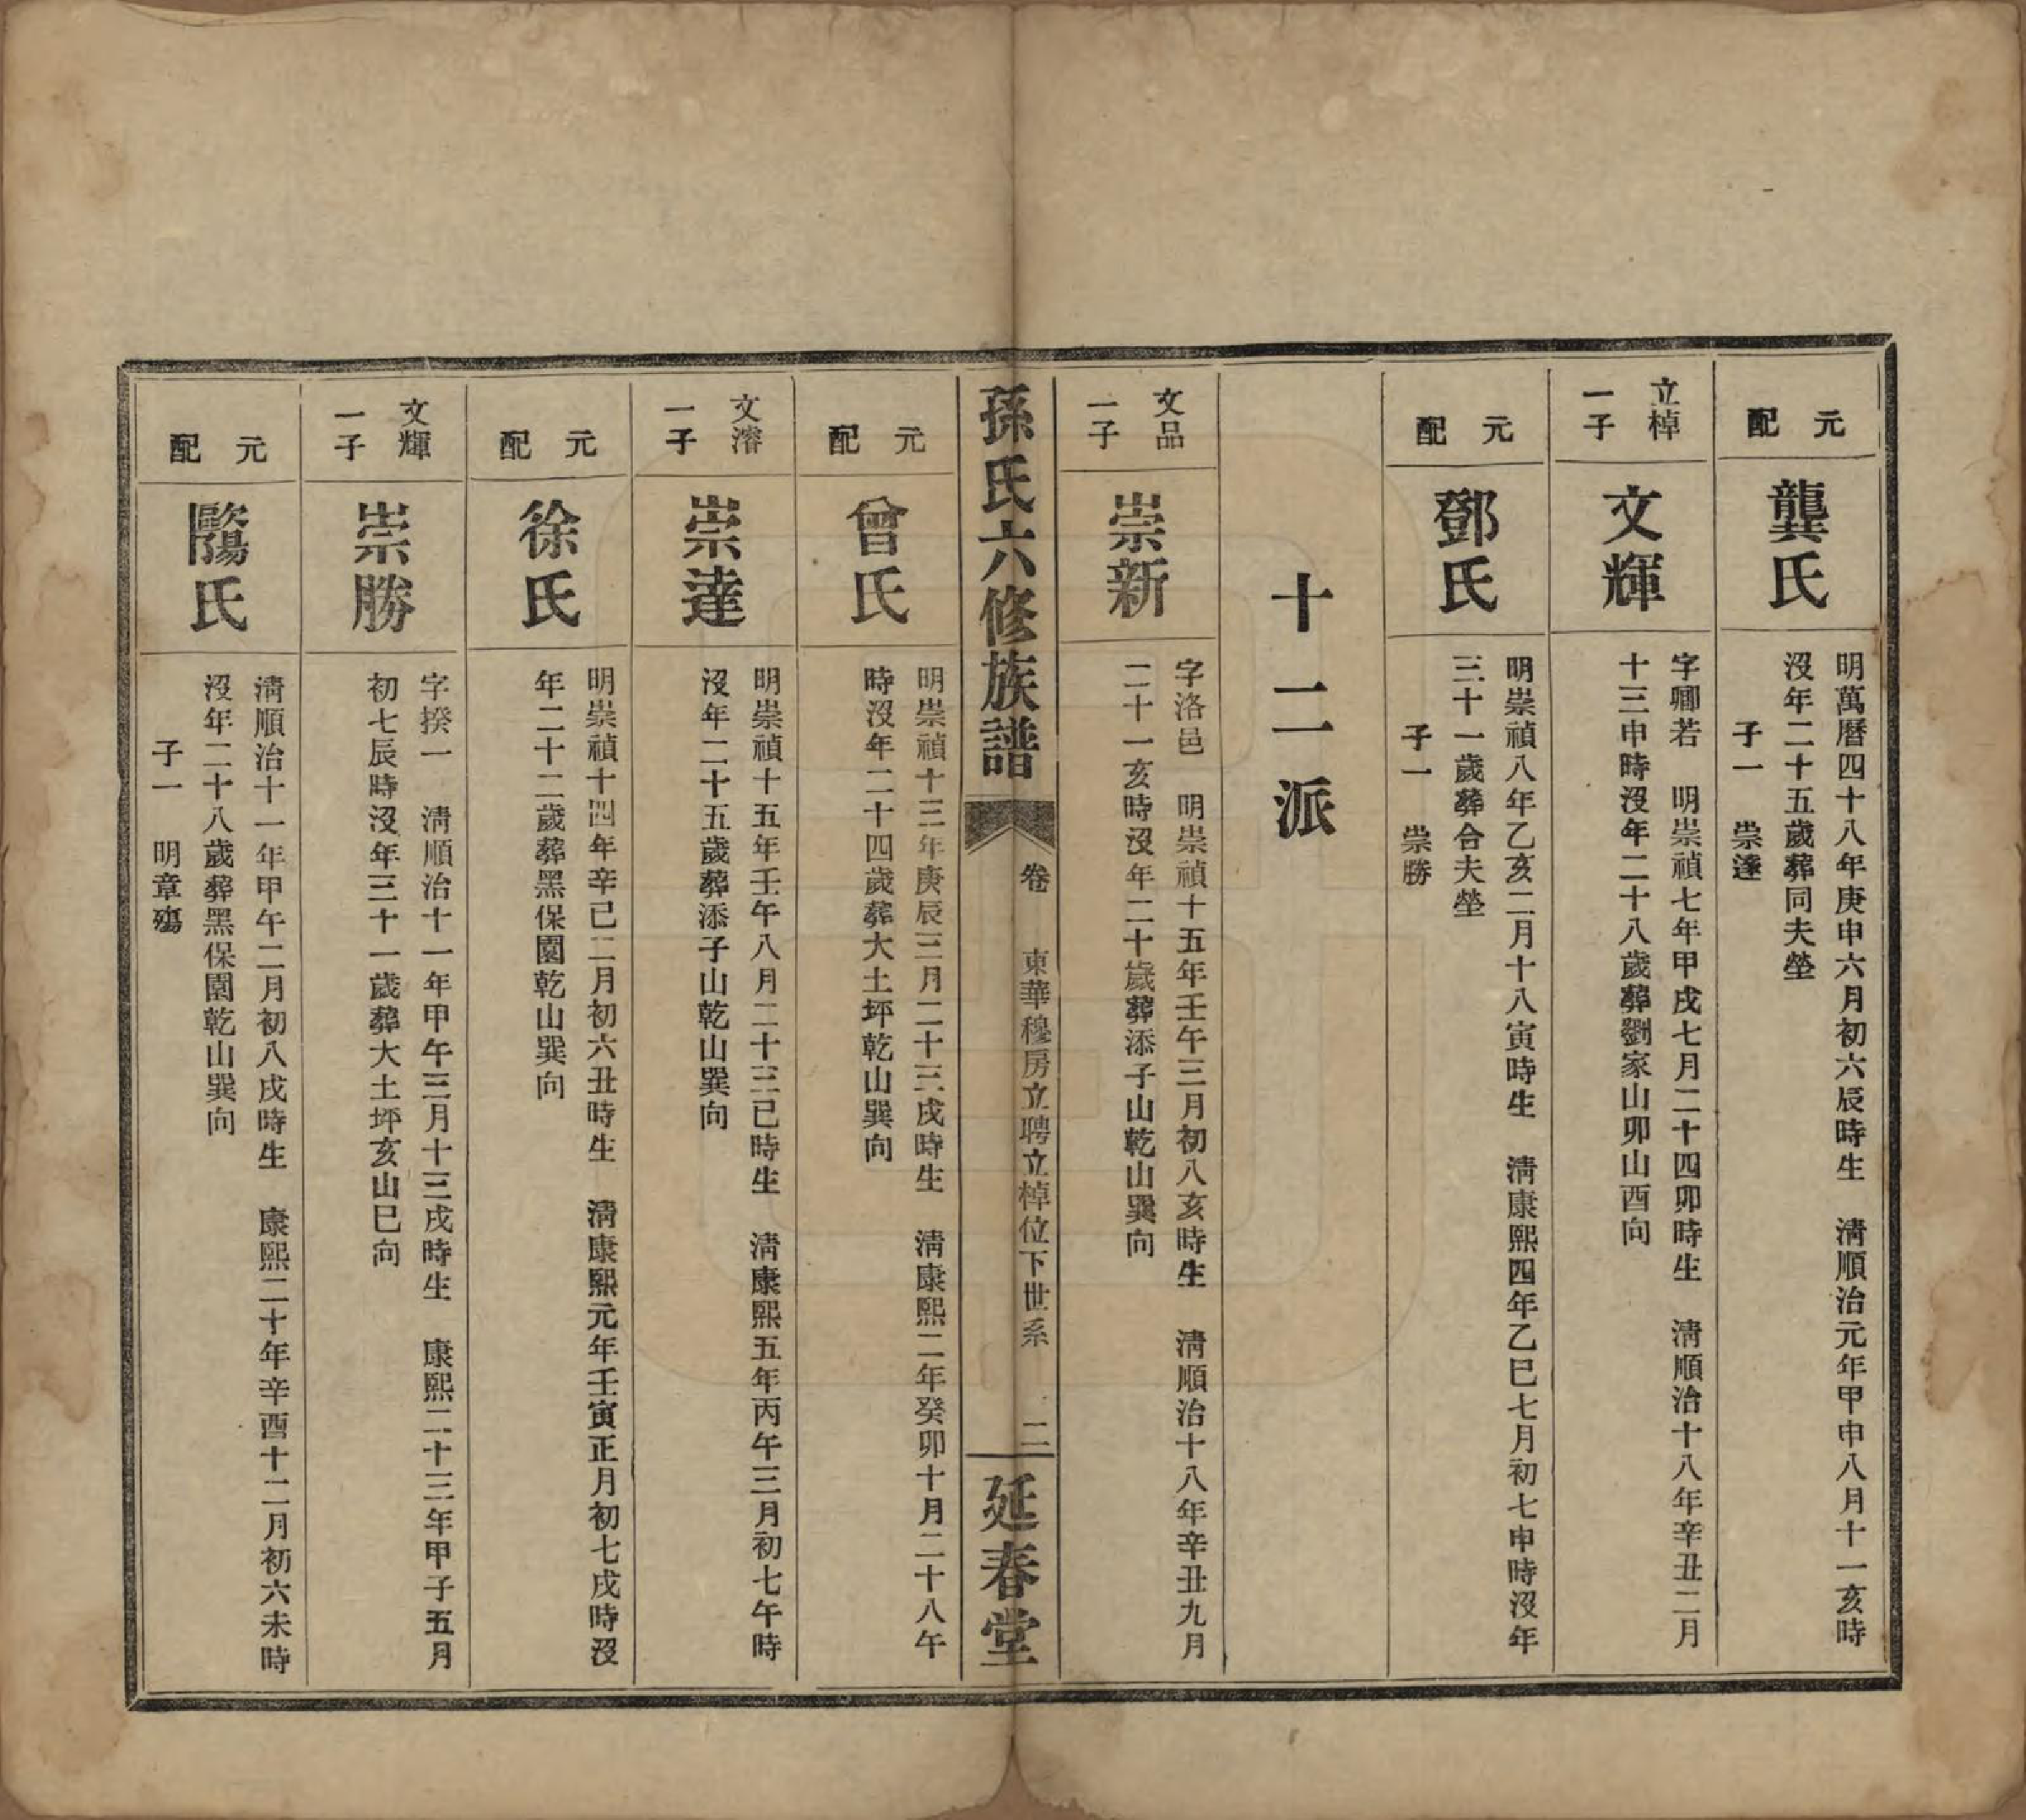 元配
龔氏
明萬曆四十八年庚申六月初六辰時生　淸順治元年甲申八月十一亥時
沒年二十五歲葬同夫塋
子一　崇達
立棹
一子
文輝
字卿若　明崇禎七年甲戌七月二十四卯時生　淸順治十八年辛丑二月
十三申時沒年二十八歲葬劉家山卯山酉向
元配
鄧氏
明崇禎八年乙亥二月十八寅時生　淸康熙四年乙巳七月初七申時沒年
三十一歲葬合夫塋
子一　崇勝
十二派
文品
一子
崇新
字洛邑　明崇禎十五年壬午三月初八亥時生　淸順治十八年辛丑九月
二十一亥時沒年二十歲葬添子山乾山巽向
孫氏六修族譜
卷　東華穆房立聘立棹位下世系　二
延春堂
元配
曾氏
明崇禎十三年庚辰三月二十三戌時生　淸康熙二年癸卯十月二十八午
時沒年二十四歲葬大土坪乾山巽向
文濬
一子
崇達
明崇禎十五年壬午八月二十三巳時生　淸康熙五年丙午三月初七午時
沒年二十五歲葬添子山乾山巽向
元配
徐氏
明崇禎十四年辛巳二月初六丑時生　淸康熙元年壬寅正月初七戌時沒
年二十二歲葬黑保園乾山巽向
文輝
一子
崇勝
字揆一　淸順治十一年甲午三月十三戌時生　康熙二十三年甲子五月
初七辰時沒年三十一歲葬大土坪亥山巳向
元配
氏
淸順治十一年甲午二月初八戌時生　康熙二十年辛酉十二月初六未時
沒年二十八歲葬黑保園乾山巽向
子一　明章殤